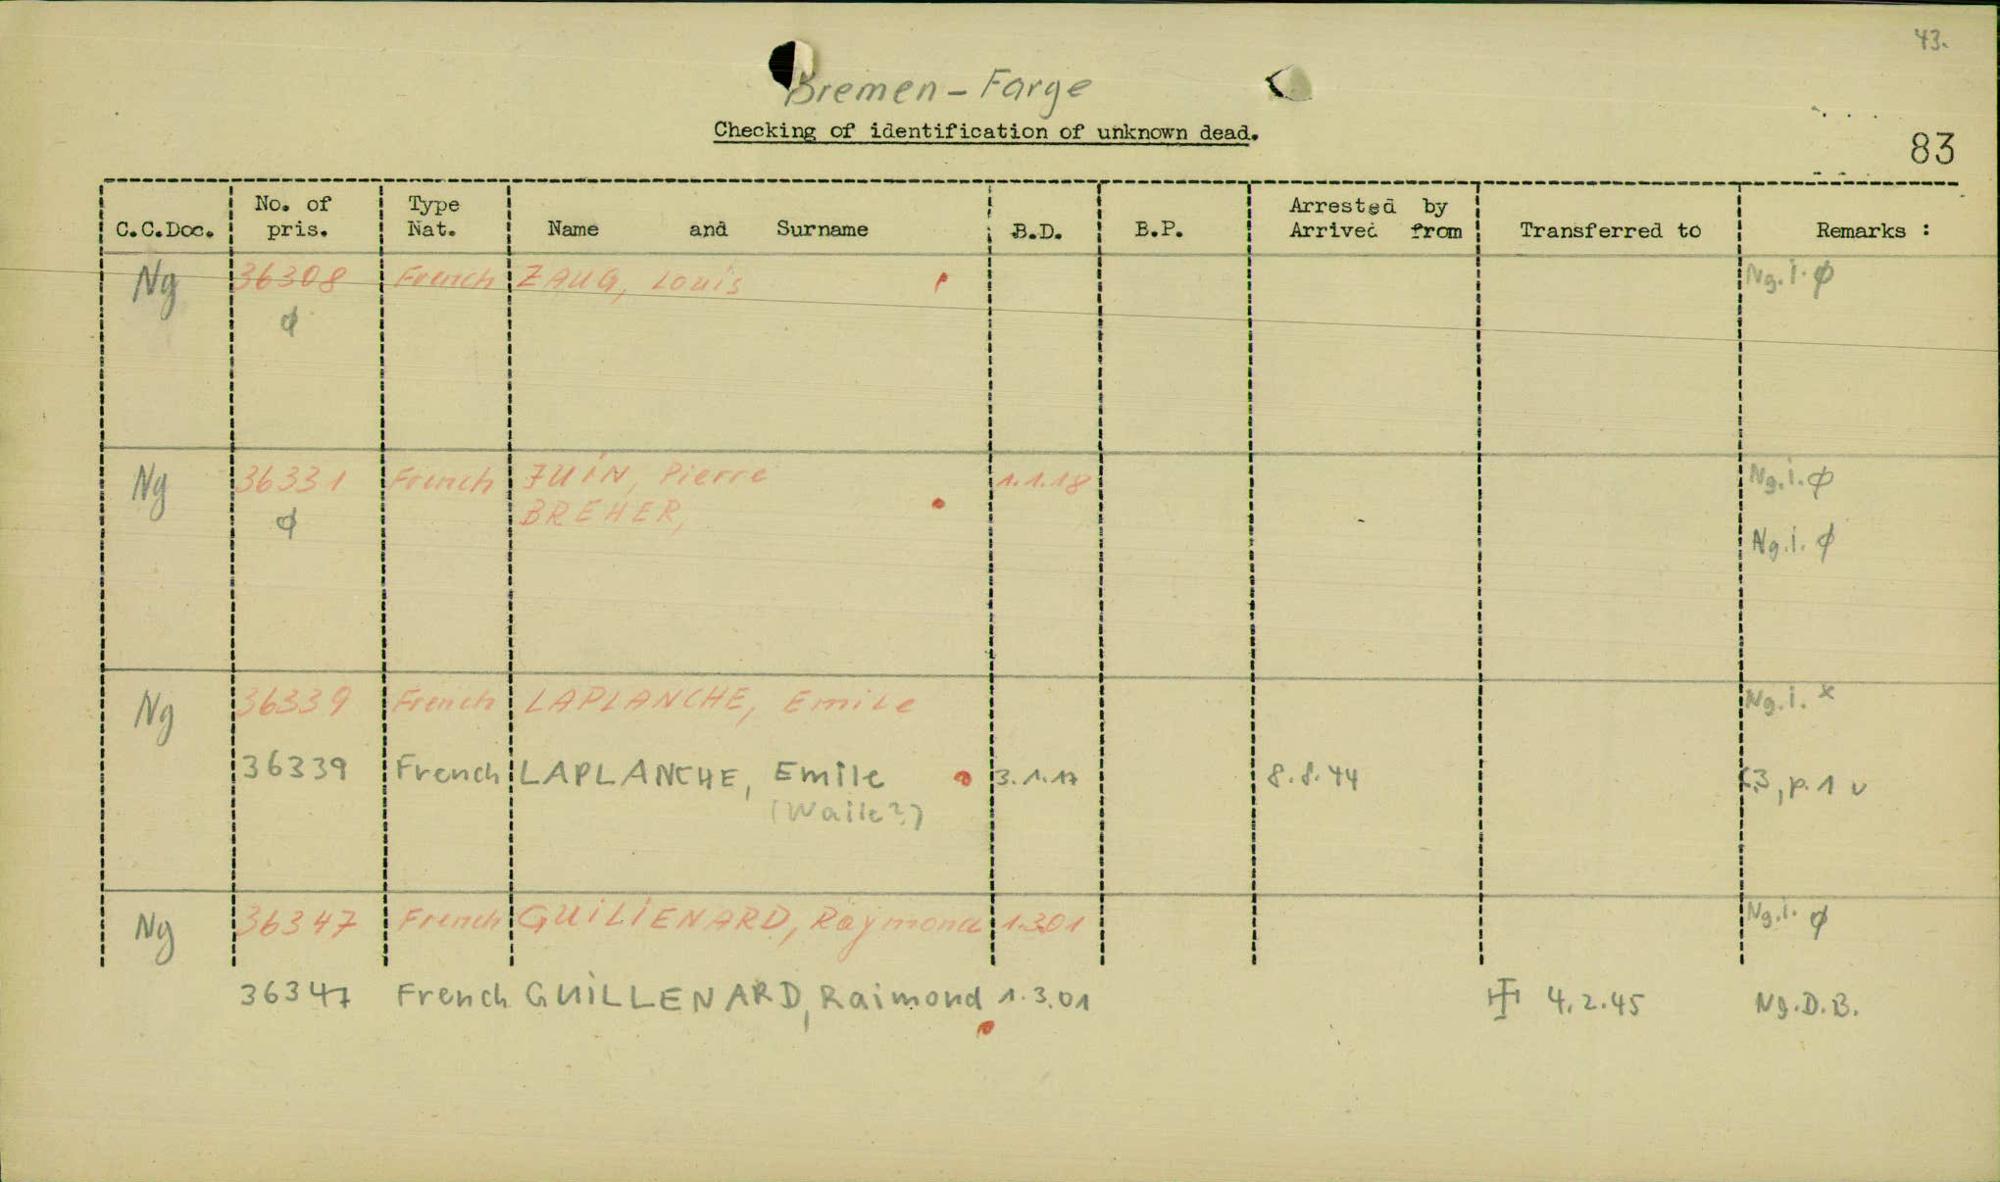 43.
Bremen - Farge
Checking of identification of unknown dead.
83
C.C.Doc. No. of pris. Type Nat. Name and Surname B.D. B.P. Arrested by Arrived from Transferred to Remarks :
Ng 36308 French ZAUG, Louis Ng.i. ϕ
ϕ
Ng 36331 French JUIN, Pierre 1.1.18 Ng.i. ϕ
ϕ BREHER, Ng.i. ϕ
Ng 36339 French LAPLANCHE, Emile Ng.i. x
36339 French LAPLANCHE, Emile 3.1.17 8.8.44 p. 1 v
(Waile?)
Ng 36347 French GUILIENARD, Raymond 1.3.01 Ng.i. ϕ
36347 French GUILLENARD, Raimond 1.3.01 4.2.45 Ng.D.B.